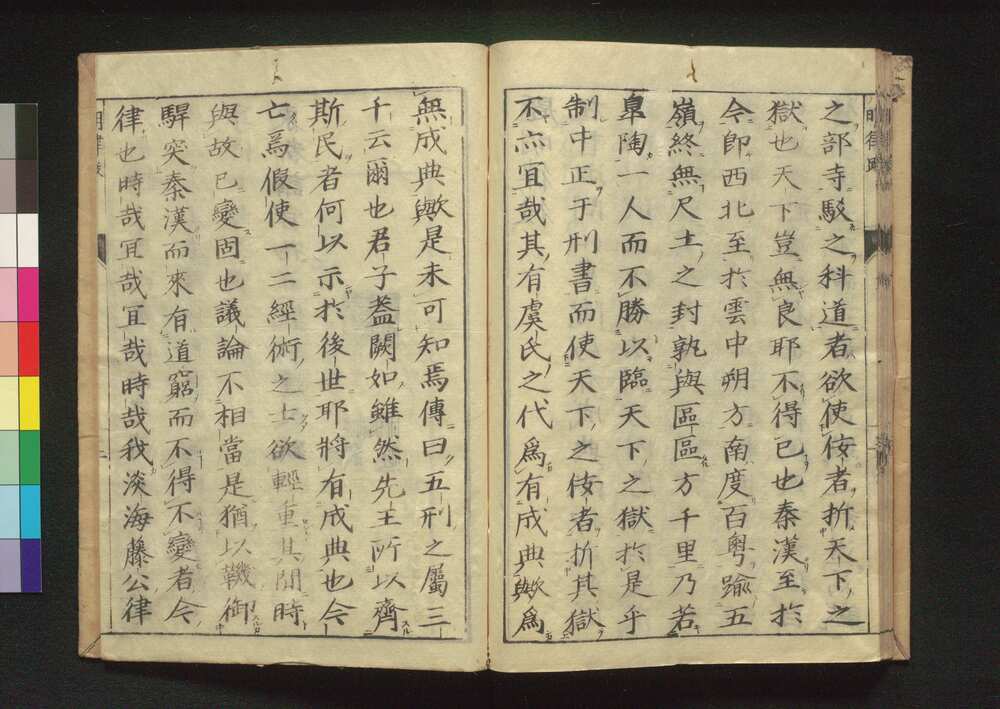 之部寺駁之科道者欲使侫者折天下之
獄也天下豈無良耶不得已也秦漢至於
今卽西北至於雲中朔方南度百粤踰五
嶺終無尺土之封孰與區區方千里乃若
皐陶一人而不勝以臨天下之獄於是乎
制中正于刑書而使天下之侫者折其獄
不亦宜哉其有虞氏之代爲有成典歟爲
無成典歟是未可知焉傳曰五刑之屬三
千云爾也君子蓋闕如雖然先王所以齊
斯民者何以示於後世耶將有成典也今
亡焉假使一二經術之士欲輕重其間時
與故已變固也議論不相當是猶以鞿御
駻突秦漢而來有道窮而不得不變者今
律也時哉宜哉宜哉時哉我淡海藤公律